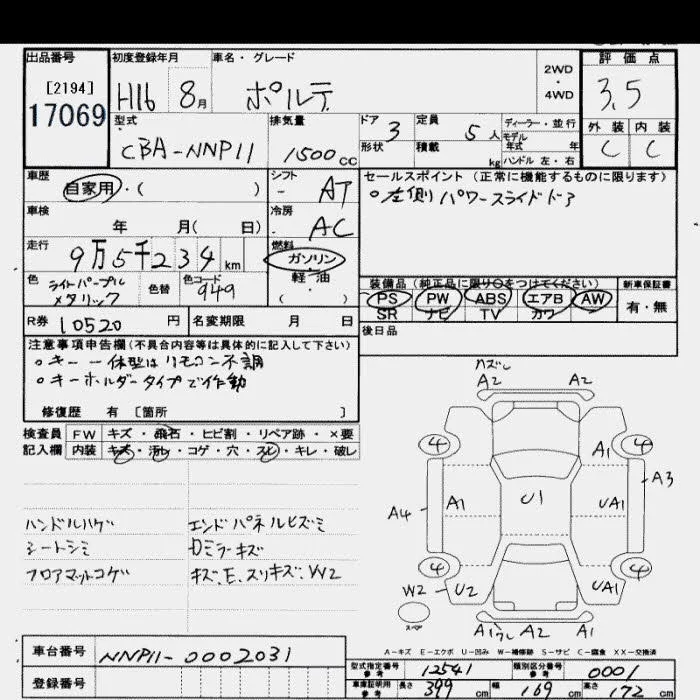 出品番号
[2194]
17069
初度登録年月
H16 8月
車名・グレード
ポルテ
2WD
・
4WD
評価点
3.5
外装 内装
C C
型式
CBA-NNP11
排気量
1500cc
ドア 3
形状
定員 5人
積載 kg
ディーラー・並行
モデル
年式 年
ハンドル 左・右
車歴
自家用・( )
シフト
- AT
セールスポイント(正常に機能するものに限ります)
○左側パワースライドドア
車検
年 月( 日)
冷房
AC
走行
9万5千234km
燃料
ガソリン
軽油
( )
色
ライトパープル
メタリック
色替
色コード
949
装備品(純正品に限り○をつけてください)
PS PW ABS エアB AW
SR ナビ TV カワ
新車保証書
有・無
R券 10520円
名変期限 月 日
後日品
注意事項申告欄(不具合内容等は具体的に記入して下さい)
○キー一体型はリモコン不調
○キーホルダータイプで作動
修復歴 有 [箇所 ]
検査員
記入欄
FW キズ・飛石・ヒビ割・リペア跡・×要
内装 キズ・汚レ・コゲ・穴・スレ・キレ・破レ
ハンドルハゲ
シートシミ
フロアマットコゲ
エンドパネルヒズミ
Dミラーキズ
キズ、E、スリキズ、W2
ハズレ
A2 A2
4 4
A1 A3
A4 A1 U1 UA1
4 4
W2 U2 UA1
スペア
A1 ワレ A2 A1
A-キズ E-エクボ U-凹み W-補修跡 S-サビ C-腐食 XX-交換済
車台番号
NNP11-0002031
登録番号
型式指定番号
参考
12541
類別区分番号
参考
0001
車庫証明用
参考
長さ 399cm 幅 169cm 高さ 172cm